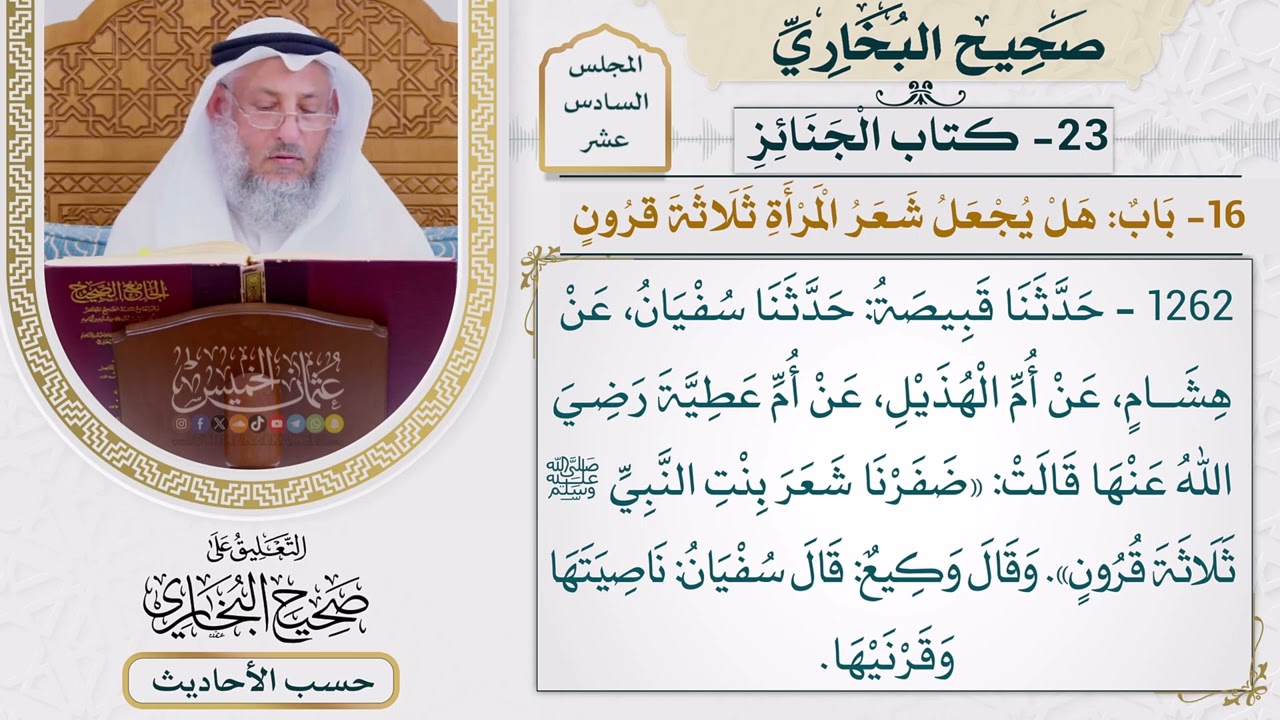 صَحِيح البُخَارِيِّ
المجلس
السادس
عشر
23- كتاب الْجَنَائِزِ
16- بَابٌ: هَلْ يُجْعَلُ شَعَرُ الْمَرْأَةِ ثَلَاثَةَ قُرُونٍ
1262 - حَدَّثَنَا قَبِيصَةُ: حَدَّثَنَا سُفْيَانُ، عَنْ
هِشَامٍ، عَنْ أُمِّ الْهُذَيْلِ، عَنْ أُمِّ عَطِيَّةَ رَضِيَ
اللهُ عَنْهَا قَالَتْ: «ضَفَرْنَا شَعَرَ بِنْتِ النَّبِيِّ ﷺ
ثَلَاثَةَ قُرُونٍ». وَقَالَ وَكِيعٌ: قَالَ سُفْيَانُ: نَاصِيَتَهَا
وَقَرْنَيْهَا.
الجامع الصحيح
عثمان الخميس
التَّعْلِيقُ عَلَى
صَحِيحِ البُخَارِي
حسب الأحاديث